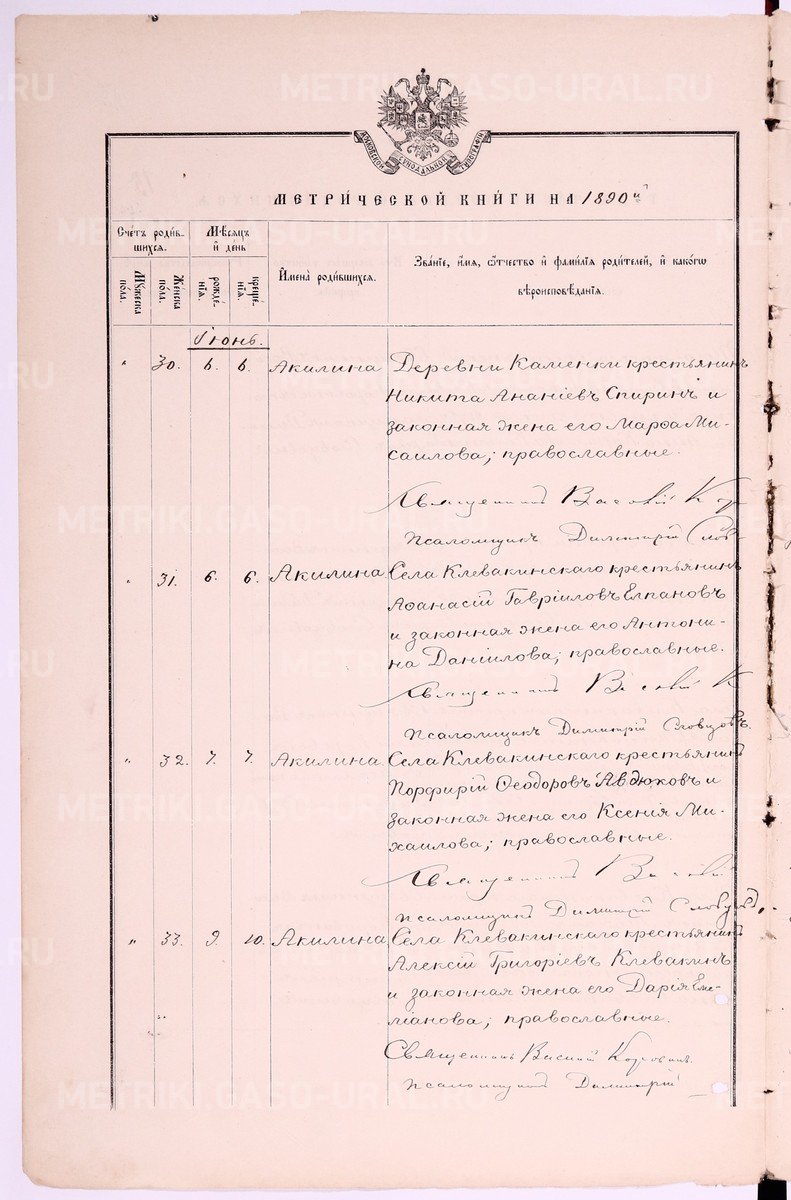 METRIKI.GASO-URAL.RU
МОСКОВСКОЙ СѴНОДАЛЬНОЙ ТИПОГРАФІИ
МЕТРИ́ЧЕСКОЙ КНИ́ГИ НА 1890 й
Сче́тъ роди́в-
шихся.
М҃ѣсяцъ
и҆ де́нь
Мꙋ́жеска
по́ла.
Же́нска
по́ла.
рожде́-
нїѧ.
креще́-
нїѧ.
И҆мена̀ роди́вшихся.
Зва́нїе, и҆́мѧ, ѻ҆́тчество и҆ фами́лїѧ роди́телей, и҆ како́гѡ
вѣроисповѣ́данїѧ.
Іюнь.
" 30. 6. 6. Акилина Деревни Каменки крестьянинъ
Никита Ананіевъ Спиринъ и
законная жена его Марѳа Ми-
саилова; православные.
Священникъ Василій Кор
Псаломщикъ Димитрій Слов-
" 31. 6. 6. Акилина Села Клевакинскаго крестьянинъ
Аѳанасій Гавріиловъ Елпановъ
и законная жена его Антони-
на Даніилова; православные.
Священникъ Василій К
Псаломщикъ Димитрій Словцовъ.
" 32. 7. 7. Акилина Села Клевакинскаго крестьянинъ
Порфирій Ѳеодоровъ Авдюковъ и
законная жена его Ксенія Ми-
хаилова; православные.
Священникъ Василій
Псаломщикъ Димитрій Словцовъ.
" 33. 9. 10. Акилина Села Клевакинскаго крестьянинъ
Алексій Григоріевъ Клевакинъ
и законная жена его Дарія Еми-
ліанова; православные.
Священникъ Василій Коровинъ.
Псаломщикъ Димитрій